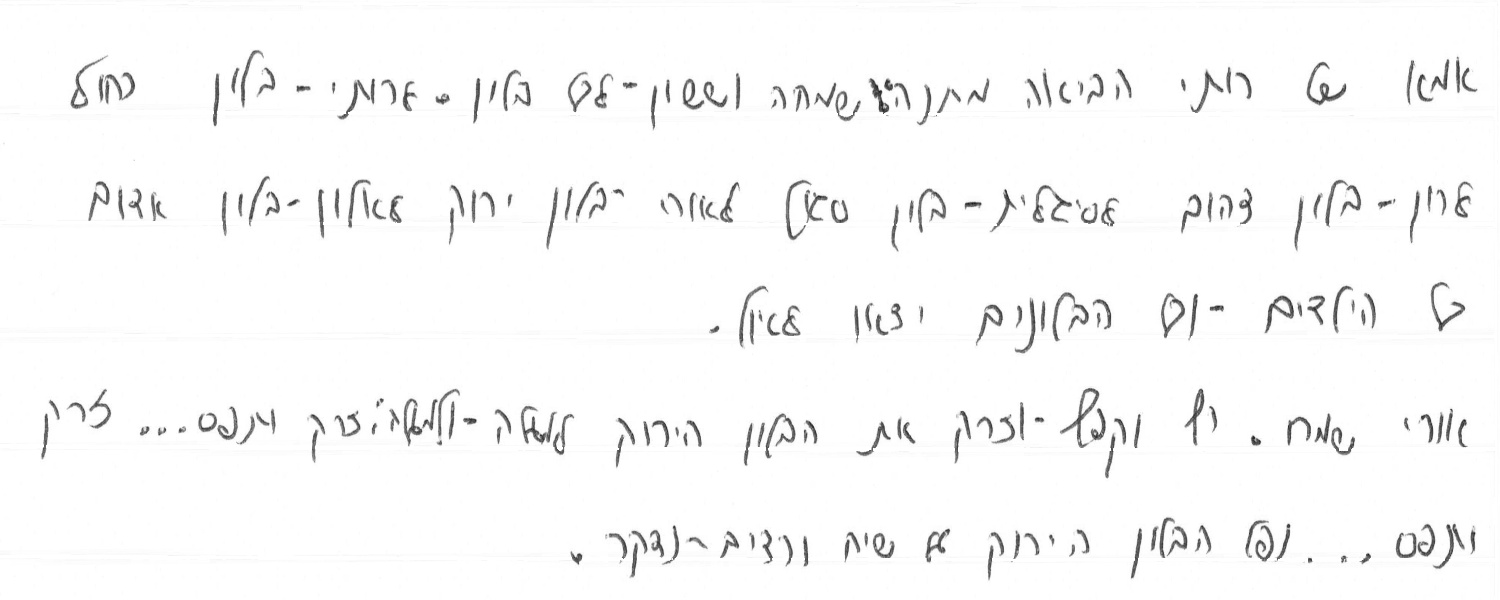 אמא של רותי הביאה מתנה שמחה וששון-לכל בלון. לרותי-בלון כחול
לרון-בלון צהוב לסיגלית-בלון סגול לאורי-בלון ירוק לאלון-בלון אדום
כל הילדים-וכל הבלונים יצאו לטיול.
אורי שמח. רץ וקפץ-וזרק את הבלון הירוק למעלה-ולמעלה: זרק ותפס... זרק
ותפס... נפל הבלון הירוק על שיח ורדים-ונדקר.